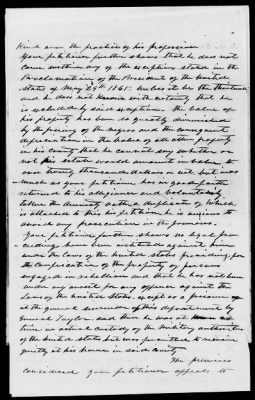 kind even the practice of his profession
Your petitioner further shows that he does not
come within any of the exceptions stated in the
Proclamation of the President of the United
States of May 29th 1865. unless it be the thirteenth
and he does not know with certainty that he
is excluded by said exception. The value of
his property has been so greatly diminished
by the freeing of the negroes and the consequent
depreciation in the value of all other property
in his County that he cannot say whether or
not his estate would amount in value to
over twenty thousand dollars or not. but inas-
much as your petitioner has in good faith
returned to his allegiance and voluntarily
taken the Amnesty oath a duplicate of which
is attached to this his petition, he is anxious to
avoid any prosecution in the premises.
Your petitioner further shows no legal pro-
ceedings have been instituted against him
under the laws of the United States providing for
the Confiscation of the property of persons
engaged in rebellion and that he has not been
under any arrest for any offence against the
Laws of the United States, except as a prisoner
at the general surrender of this department by
General Taylor, and then he was at no
time in actual custody of the Military authorities
of the United States but was permitted to remain
quietly at his home in said County
The premises
considered your petitioner appeals to